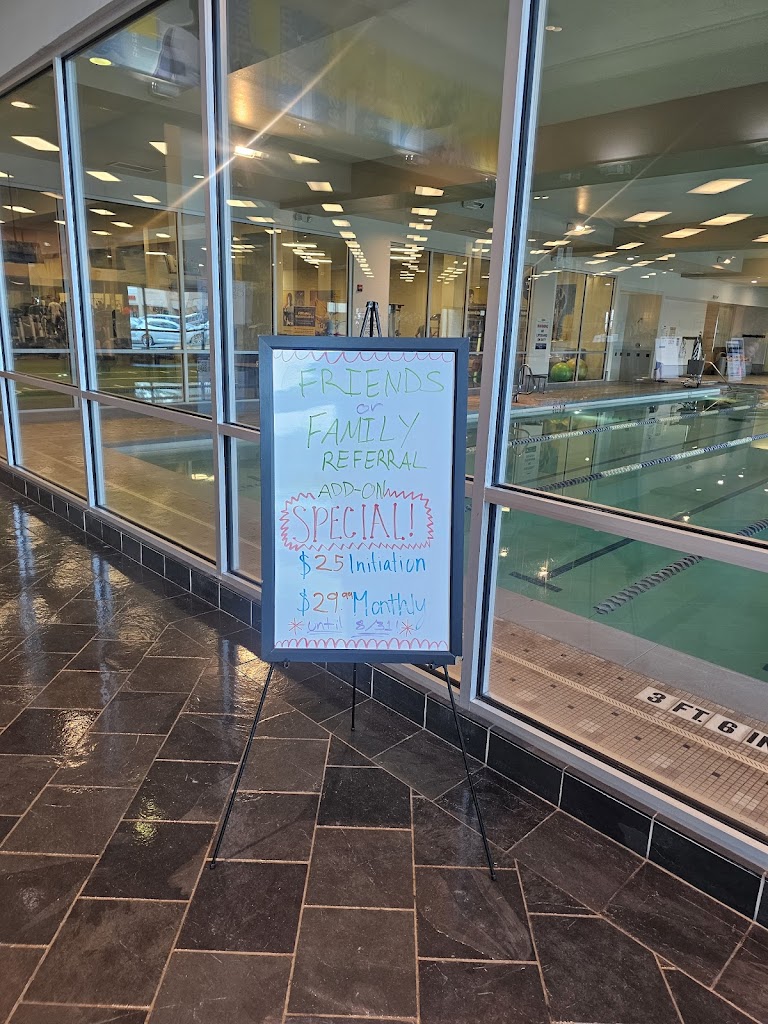 FRIENDS
or
FAMILY
REFERRAL
ADD-ON
SPECIAL!
$25 Initiation
$29.99 Monthly
until 8/31!
3 FT. 6 IN